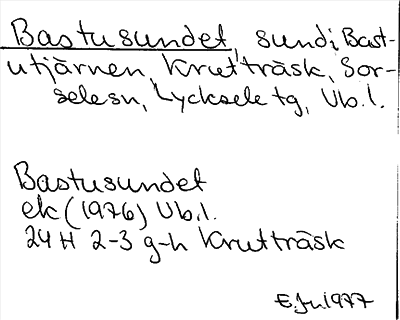 Bastusundet, sund i Bast-
utjärnen, Krutträsk, Sor-
selesn, Lycksele tg, Vb.l.
Bastusundet
ek (1976) Vb.l.
24 H 2-3 g-h Krutträsk
E.Ju 1977